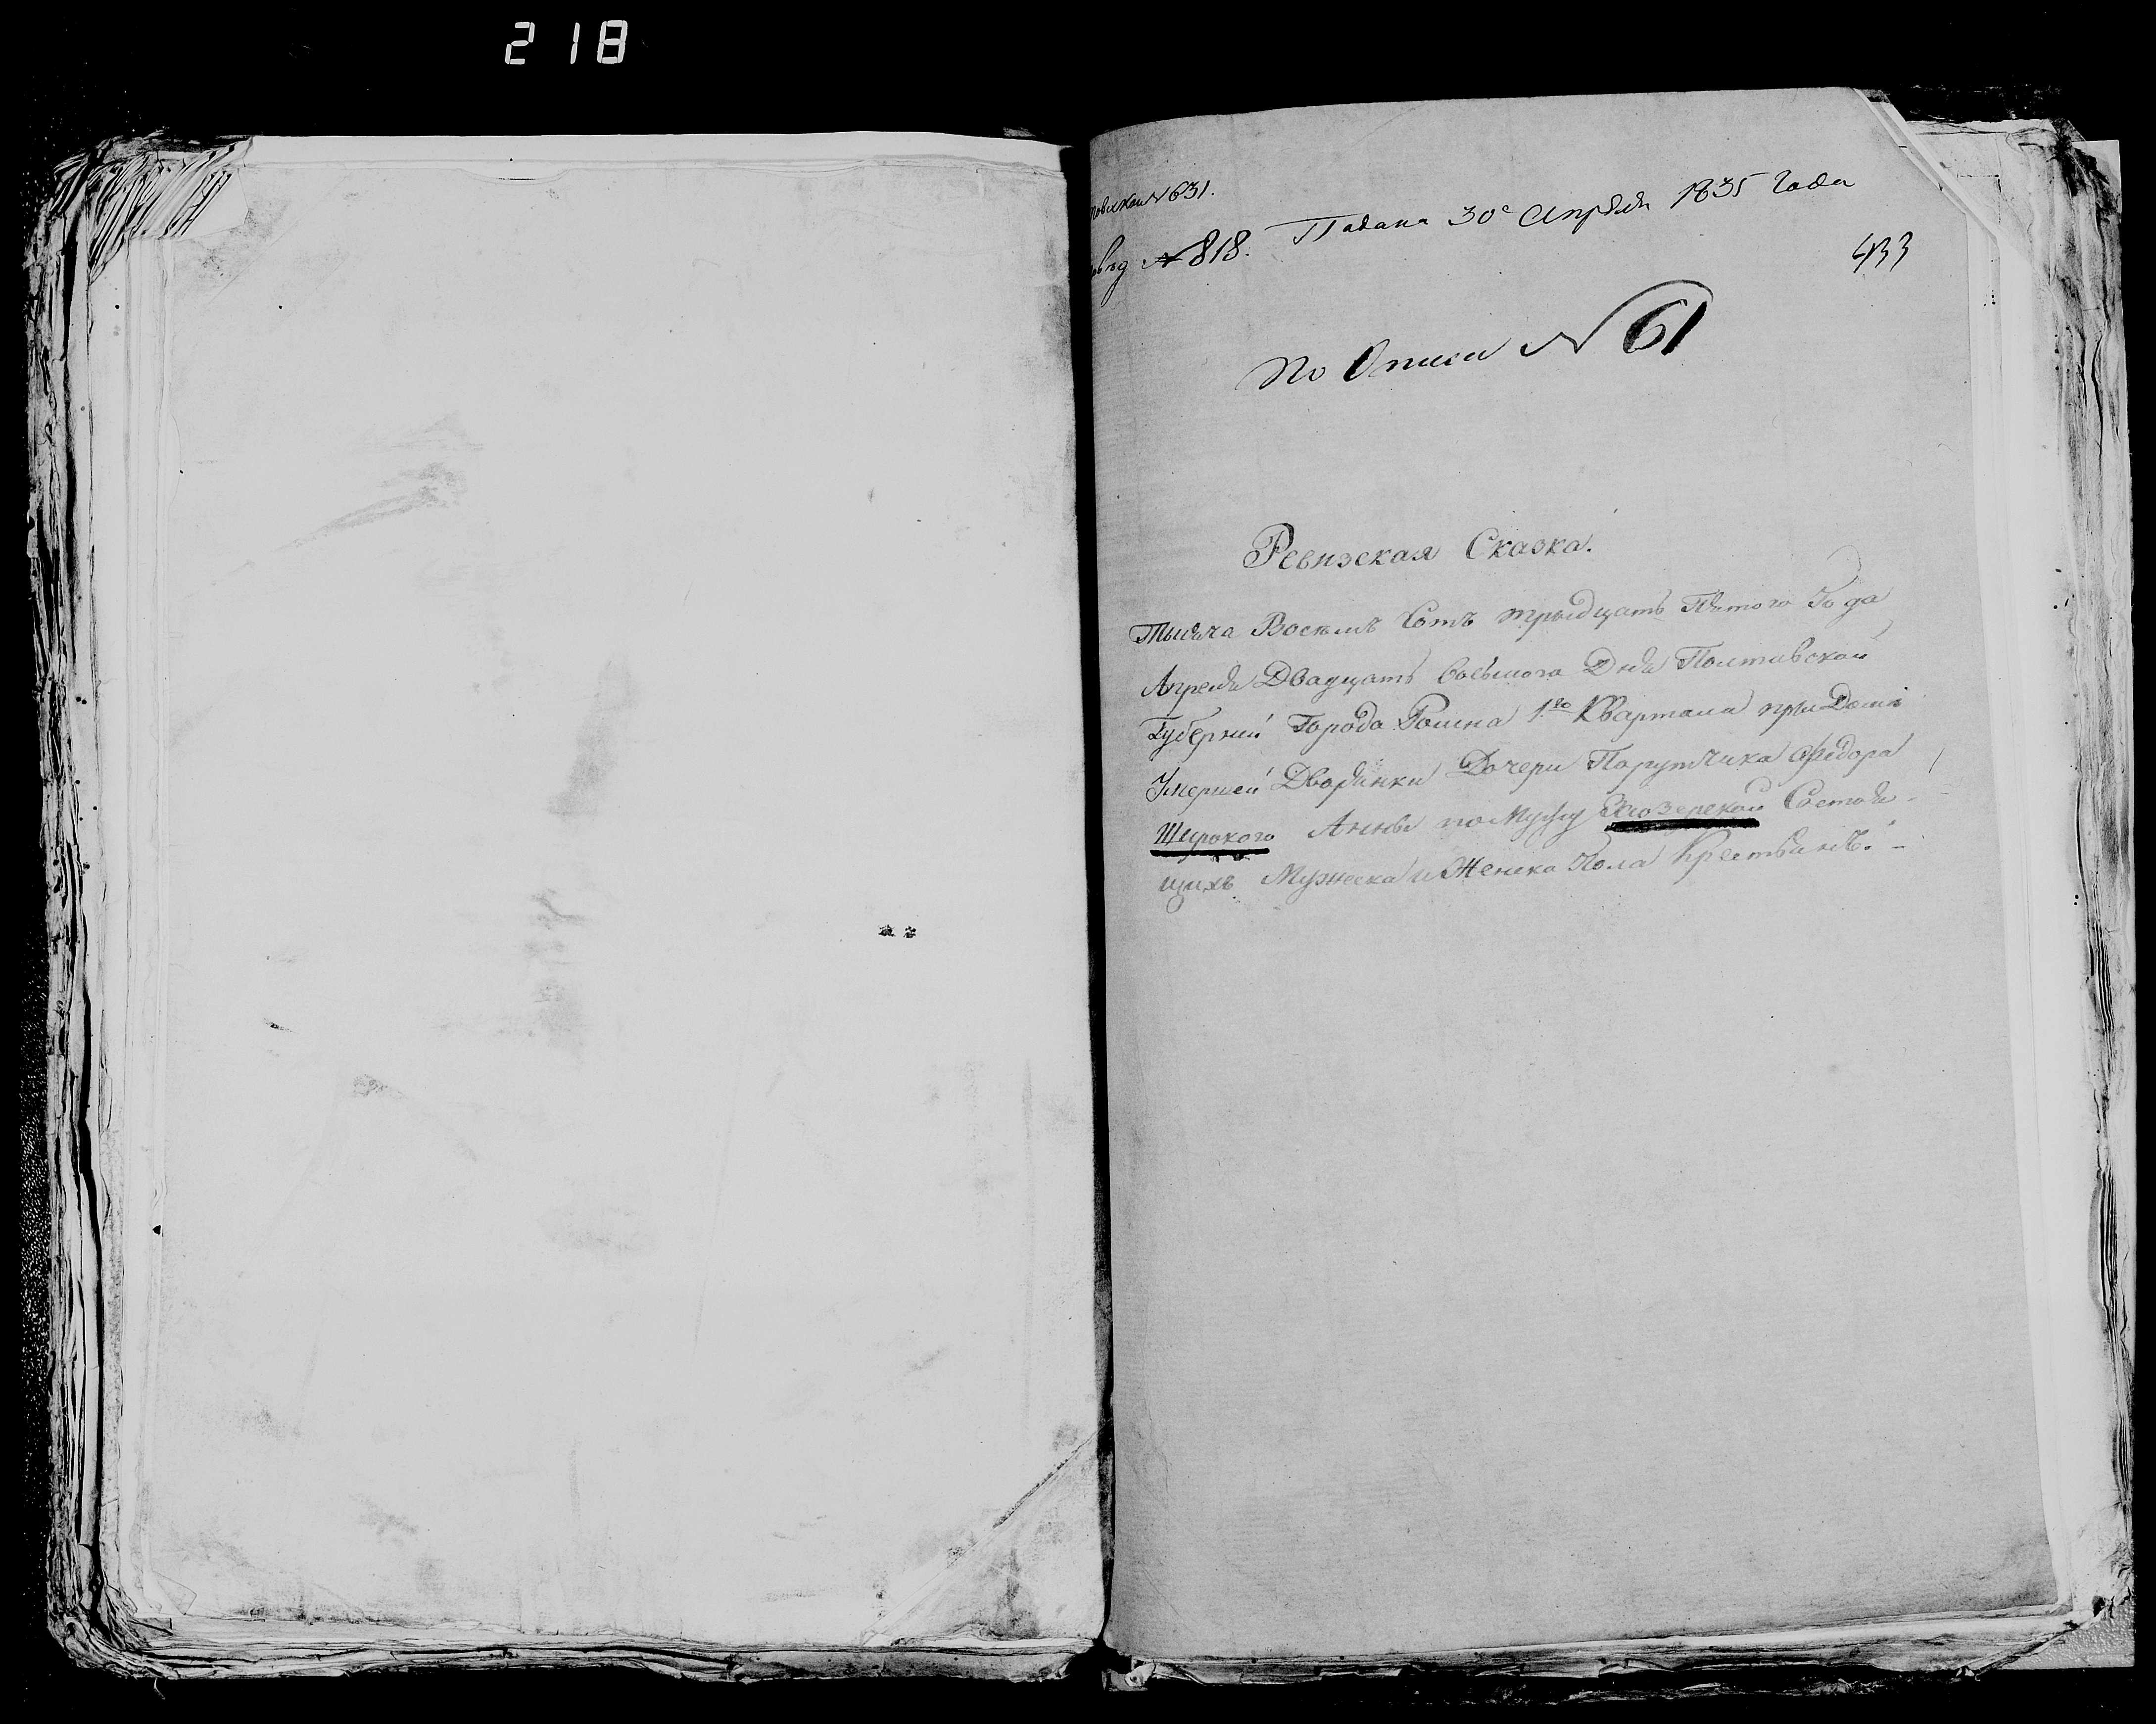 218
№ 631.
№ 818. Подана 30е Апреля 1835 Года
433
По Описи № 61
Ревизская Сказка.
Тысяча Восемь Сотъ тридцать Пятого Года
Апреля Двадцать Восьмого Дня Полтавской
Губернии Города Ромна 1го Квартала при Доме
Умершей Дворянки Дочери Порутчика Федора
Щирокого Анны по Мужу Состоя-
щихъ Мужеска и Женска Пола Крестьянъ.